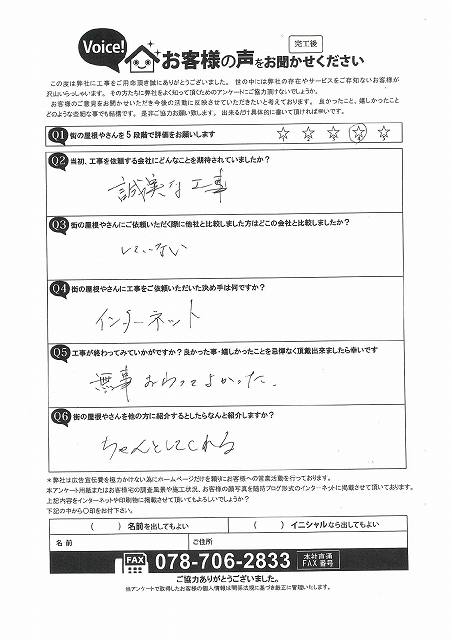 Voice!
お客様の声をお聞かせください
完工後
この度は弊社に工事をご用命頂き誠にありがとうございました。 世の中には弊社の存在やサービスをご存知ないお客様が
沢山いらっしゃいます。その方たちに弊社をよく知って頂くためのアンケートにご協力頂けないでしょうか。
お客様のご意見をお聞かせいただき今後の活動に反映させていただきたいと考えております。 良かったこと、嬉しかったこと
どのような些細な事でも結構です。 是非ご協力お願い致します。 出来るだけ具体的に書いて頂ければ幸いです。
Q1 街の屋根やさんを5段階で評価をお願いします
1 2 3 4 5
Q2 当初、工事を依頼する会社にどんなことを期待されていましたか?
誠実な工事
Q3 街の屋根やさんにご依頼いただく際に他社と比較しました方はどこの会社と比較しましたか?
していない
Q4 街の屋根やさんに工事をご依頼いただいた決め手は何ですか?
インターネット
Q5 工事が終わってみていかがですか?良かった事・嬉しかったことを忌憚なく頂戴出来ましたら幸いです
無事おわってよかった。
Q6 街の屋根やさんを他の方に紹介するとしたらなんと紹介しますか?
ちゃんとしてくれる
*弊社は広告宣伝費を極力かけない為にホームページだけを頼りにお客様への営業活動を行っております。
本アンケート用紙またはお客様宅の調査風景や施工状況、お客様の顔写真を随時ブログ形式のインターネットに掲載させて頂いております。
上記内容をインターネットや印刷物に掲載させて頂いてもよろしいでしょうか?
下記の中から〇印をお付下さい。
( )名前を出してもよい ( )イニシャルなら出してもよい
名前 ご住所
FAX 078-706-2833 本社直通FAX番号
ご協力ありがとうございました。
当アンケートで取得したお客様の個人情報は関係法規に基づき厳正に管理いたします。